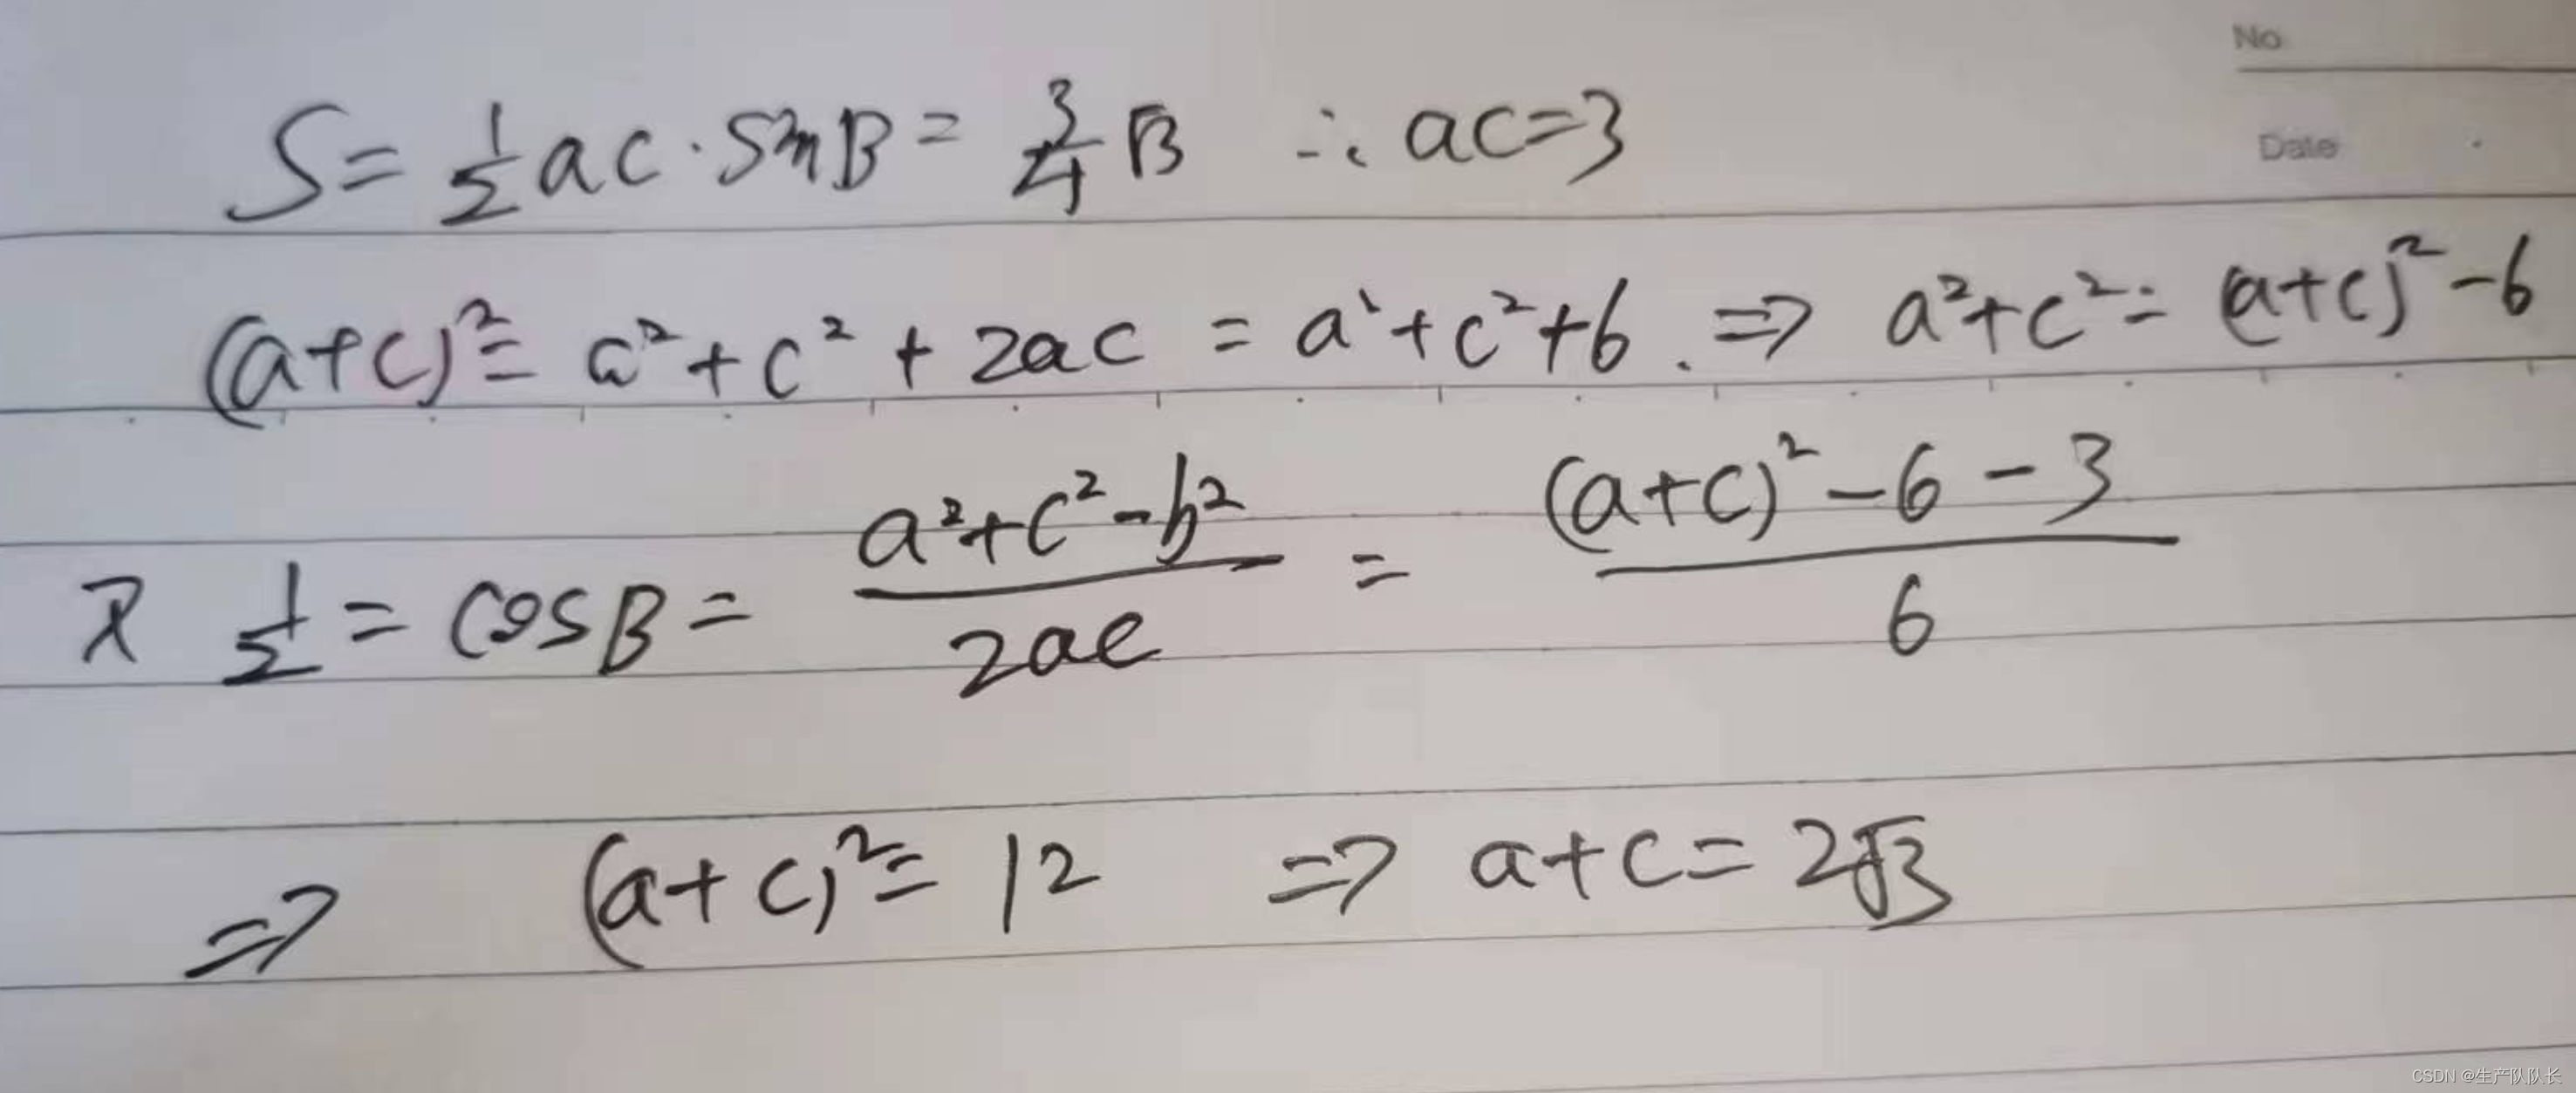 No
Date
S = 1/2 ac · sinB = 3/4 √3 ∴ ac=3
(a+c)² = a² + c² + 2ac = a² + c² + 6 . ⇒ a² + c² = (a+c)² - 6
又 1/2 = cosB = (a² + c² - b²)/(2ac) = ((a+c)² - 6 - 3)/6
⇒ (a+c)² = 12 ⇒ a+c = 2√3
CSDN @生产队队长